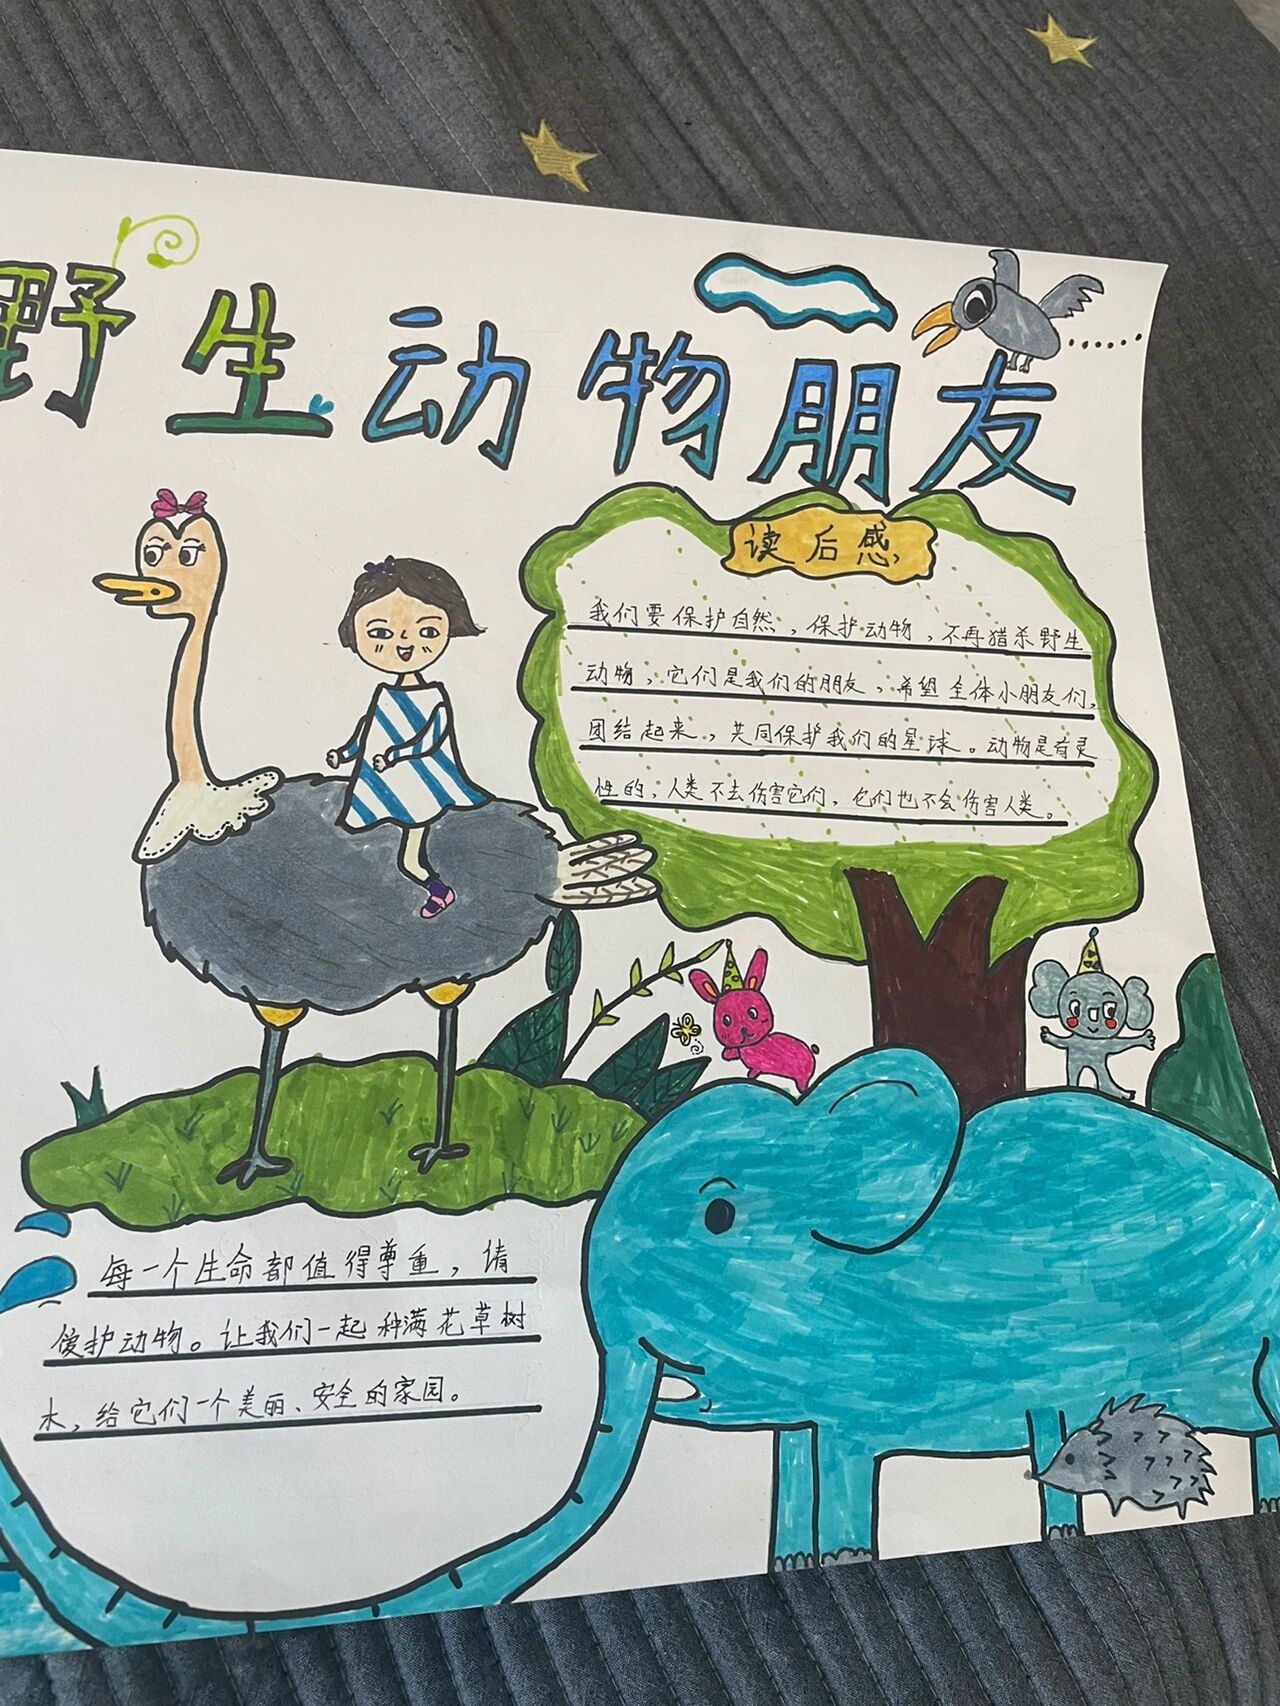 野生动物朋友
读后感
我们要保护自然，保护动物，不再猎杀野生
动物，它们是我们的朋友，希望全体小朋友们，
团结起来，共同保护我们的星球。动物是有灵
性的，人类不去伤害它们，它们也不会伤害人类。
每一个生命都值得尊重，请
爱护动物。让我们一起种满花草树
木，给它们一个美丽、安全的家园。